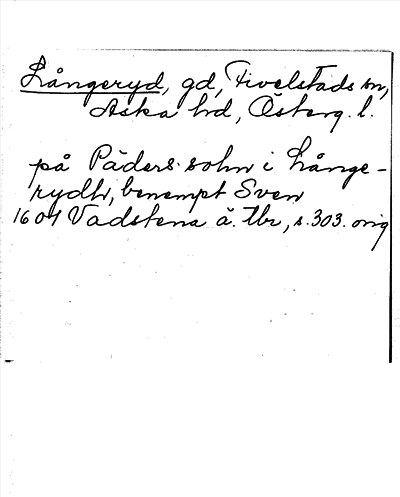 Långeryd, gd, Fivelstads sn,
Aska hd, Österg. l.
på Päders sohn i Långe-
rydh, benempt Sven
1604 Vadstena ä. tbr, s. 303. orig